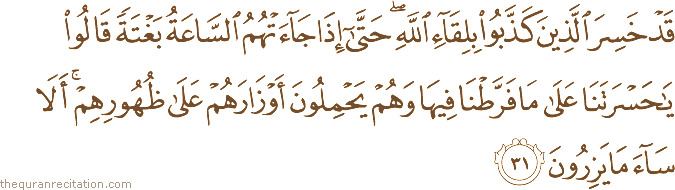 قَدۡ خَسِرَ ٱلَّذِينَ كَذَّبُواْ بِلِقَآءِ ٱللَّهِۖ حَتَّىٰٓ إِذَا جَآءَتۡهُمُ ٱلسَّاعَةُ بَغۡتَةٗ قَالُواْ
يَٰحَسۡرَتَنَا عَلَىٰ مَا فَرَّطۡنَا فِيهَا وَهُمۡ يَحۡمِلُونَ أَوۡزَارَهُمۡ عَلَىٰ ظُهُورِهِمۡۚ أَلَا
سَآءَ مَا يَزِرُونَ ٣١
thequranrecitation.com